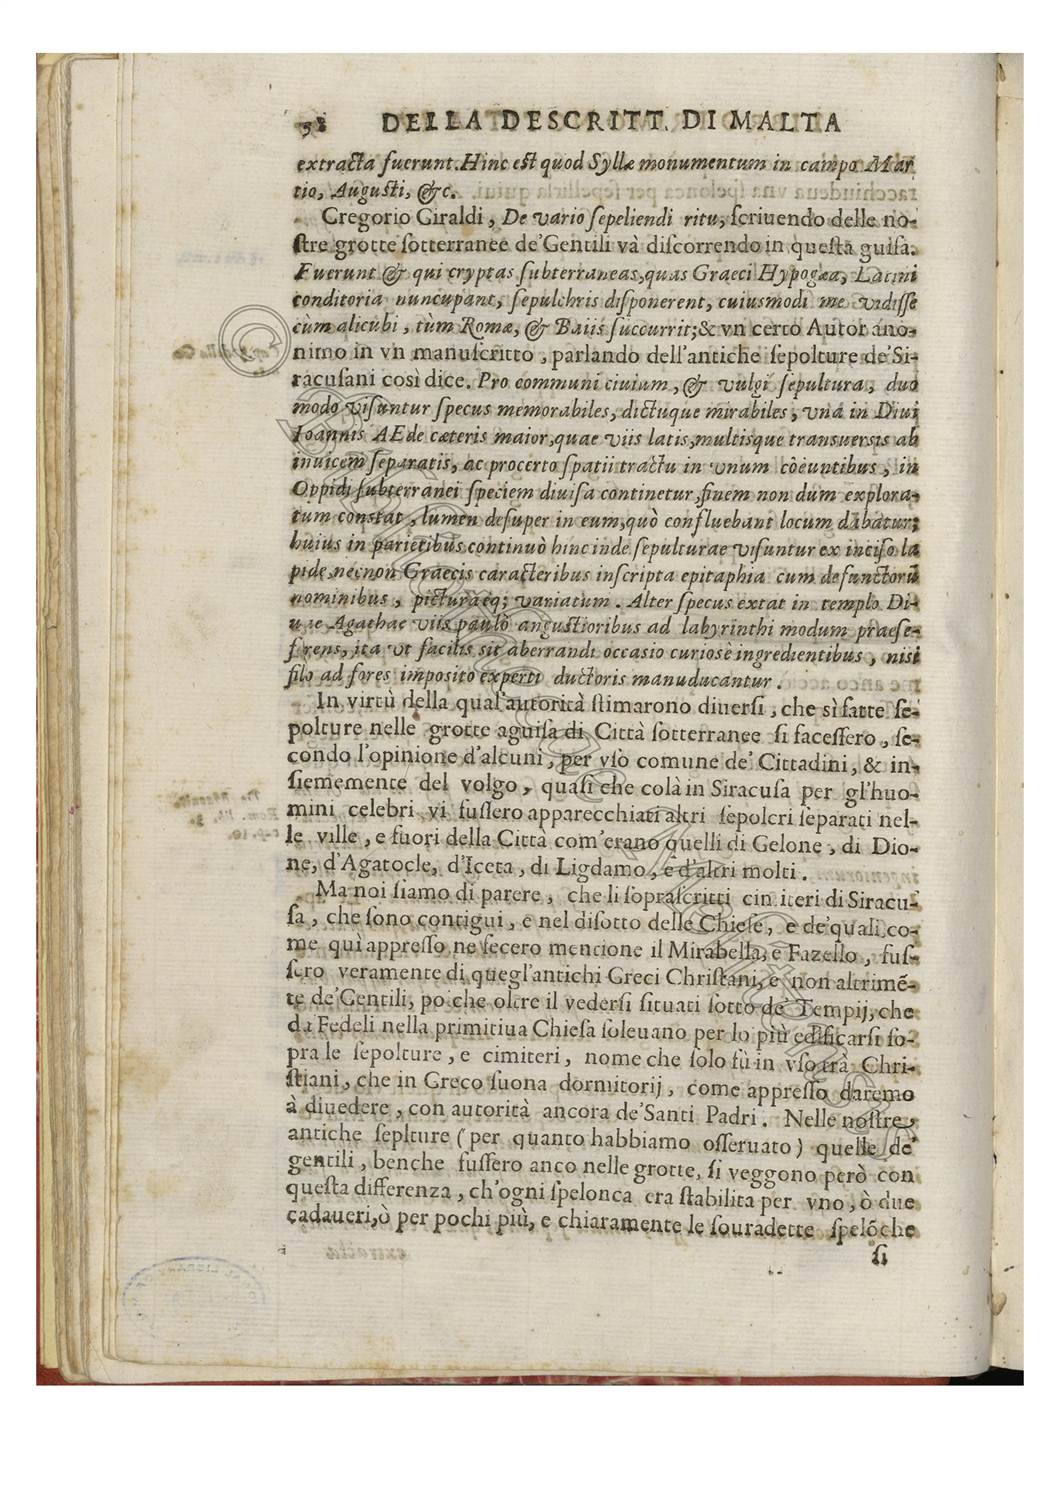 58 DELLA DESCRITT. DI MALTA
extracta fuerunt. Hinc est quod Syllæ monumentum in campo Mar
tio, Augusti, &c.
Gregorio Giraldi, De vario sepeliendi ritu, scriuendo delle no-
stre grotte sotterranee de'Gentili và discorrendo in questa guisa.
Fuerunt & qui cryptas subterraneas, quas Graeci Hypogæa, Latini
conditoria nuncupant, sepulchris disponerent, cuiusmodi me vidisse
cùm alicubi, tùm Romæ, & Baiis succurrit; & vn certo Autor ano-
nimo in vn manuscritto, parlando dell'antiche sepolture de'Si-
racusani così dice. Pro communi ciuium, & vulgi sepultura, duo
modo visuntur specus memorabiles, dictuque mirabiles, vna in Diui
Ioannis AEde cæteris maior, quae viis latis, multisque transuersis ab
inuicem separatis, ac procerto spatii tractu in vnum côeuntibus, in
Oppidi subterranei speciem diuisa continetur, finem non dum explora-
tum constat, lumen desuper in eum, quò confluebant locum dabatur;
huius in parietibus continuò hinc inde sepulturae visuntur ex inciso la
pide, necnon Graecis caracteribus inscripta epitaphia cum defunctorũ
nominibus, picturaeq; variatum. Alter specus extat in templo Di-
uae Agathae viis paulò angustioribus ad labyrinthi modum praese-
ferens, ita vt facilis sit aberrandi occasio curiosè ingredientibus, nisi
filo ad fores imposito experti ductoris manuducantur.
In virtù della qual'autorità stimarono diuersi, che sì fatte se-
polture nelle grotte aguisa di Città sotterranee si facessero, se-
condo l'opinione d'alcuni, per vso comune de' Cittadini, & in-
siememente del volgo, quasi che colà in Siracusa per gl'huo-
mini celebri vi fussero apparecchiati altri sepolcri separati nel-
le ville, e fuori della Città com'erano quelli di Gelone, di Dio-
ne, d'Agatocle, d'Iceta, di Ligdamo, e d'altri molti.
Ma noi siamo di parere, che li soprascritti cimiteri di Siracu-
sa, che sono contigui, e nel disotto delle Chiese, e de'quali co-
me quì appresso ne fecero mentione il Mirabella, e Fazello, fus-
sero veramente di quegl'antichi Greci Christani, e non altrimẽ-
te de'Gentili, poiche oltre il vedersi situati sotto de' Tempij, che
da Fedeli nella primitiua Chiesa soleuano per lo più edificarsi so-
pra le sepolture, e cimiteri, nome che solo fù in vso trà Chri-
stiani, che in Greco suona dormitorij, come appresso daremo
à diuedere, con autorità ancora de'Santi Padri. Nelle nostre
antiche seplture (per quanto habbiamo osseruato) quelle de'
gentili, benche fussero anco nelle grotte, si veggono però con
questa differenza, ch'ogni spelonca era stabilita per vno, ò due
cadaueri, ò per pochi più, e chiaramente le souradette spelõche
si